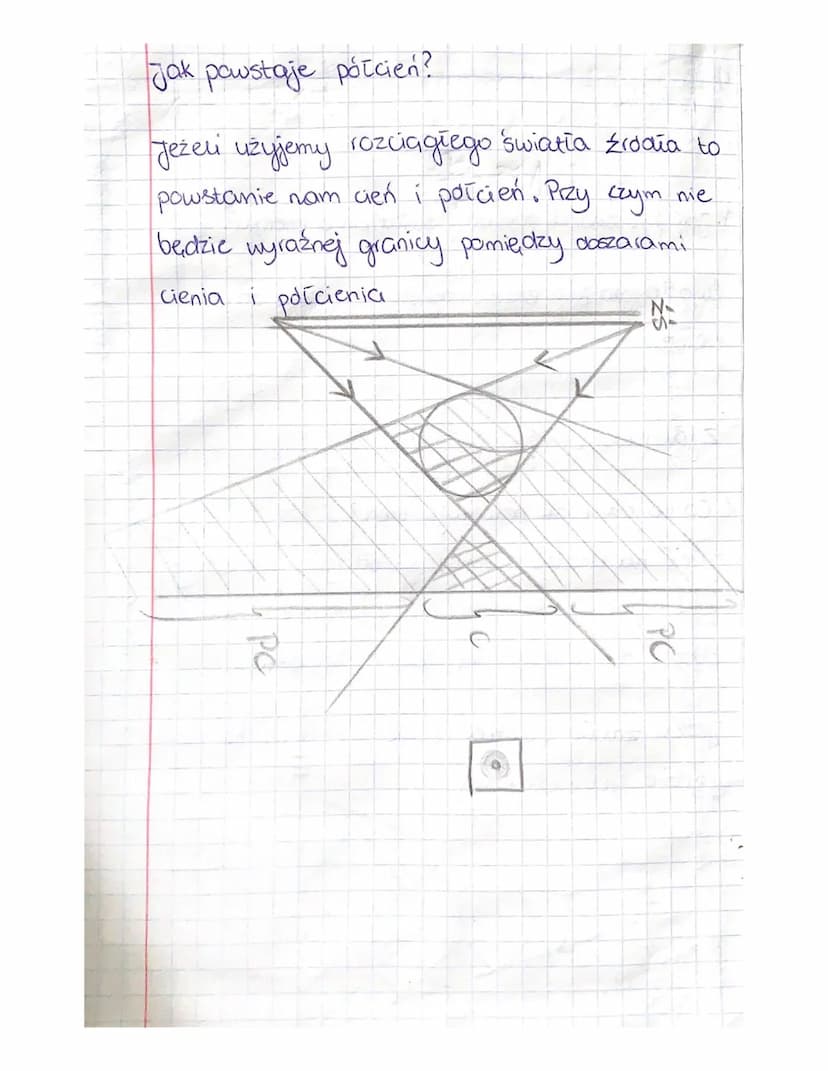 Jak powstaje półcień?
Jeżeli użyjemy rozciągłego światła źródła to
powstanie nam cień i półcień. Przy czym nie
będzie wyraźnej granicy pomiędzy obszarami
cienia i półcienia
PC
C
PC